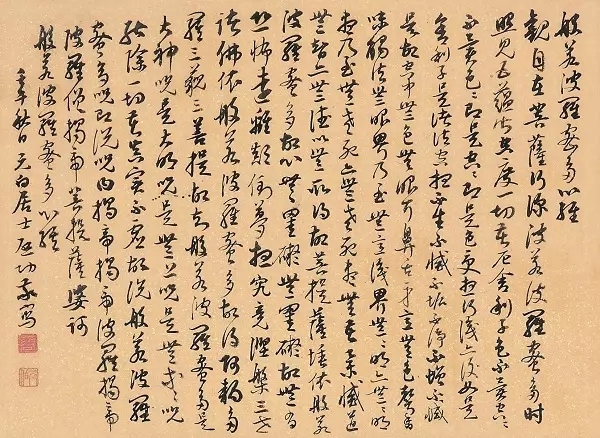 般若波羅蜜多心經
觀自在菩薩行深波若波羅蜜多時
照見五蘊皆空度一切苦厄舍利子色不異空空
不異色色即是空空即是色受想行識亦復如是
舍利子是諸法空相不生不滅不垢不淨不增不減
是故空中無色無眼耳鼻舌身意無色聲香
味觸法無眼界乃至無意識界無無明亦無無明
盡乃至無老死亦無老死盡無苦集滅道
無智亦無得以無所得故菩提薩埵依般若
波羅蜜多故心無罣礙無罣礙故無有
恐怖遠離顛倒夢想究竟涅槃三世
諸佛依般若波羅蜜多故得阿耨多
羅三藐三菩提故知般若波羅蜜多是
大神呪是大明呪是無上呪是無等等呪
能除一切苦真實不虛故說般若波羅
蜜多呪即說呪曰揭帝揭帝波羅揭帝
波羅僧揭帝菩提薩婆訶
般若波羅蜜多心經
秋日元白居士啟功敬寫